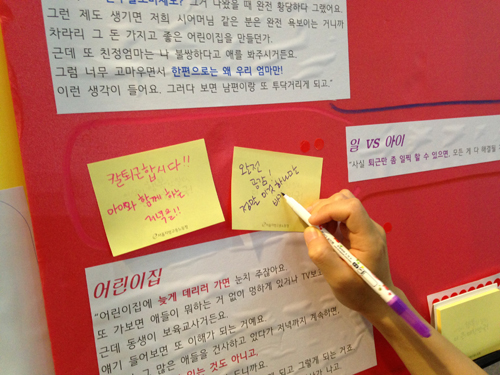 그거 나왔을 때 완전 황당하다 그랬어요.
그런 제도 생기면 저희 시어머님 같은 분은 완전 욕보이는 거니까
차라리 그 돈 가지고 좋은 어린이집을 만들던가.
근데 또 친정엄마는 나 불쌍하다고 애를 봐주시거든요.
그럼 너무 고마우면서 한편으로는 왜 우리 엄마만!
이런 생각이 들어요. 그러다 보면 남편이랑 또 투닥거리게 되고."
일 vs 아이
"사실 퇴근만 좀 일찍 할 수 있으면, 모든 게 다 해결될
칼퇴근합시다!!
아이와 함께 하는
저녁을!!
완전
공감!
어린이집
"어린이집에 늦게 데리러 가면 눈치 주잖아요.
또 가보면 애들이 뭐하는 거 없이 멍하게 있거나 TV보고
근데 동생이 보육교사거든요.
얘기 들어보면 또 이해가 되는 거예요.
많은 애들을 건사하고 있다가 저녁까지 계속하면,
있는 것도 아니고,
되고 그렇게 되는 거죠